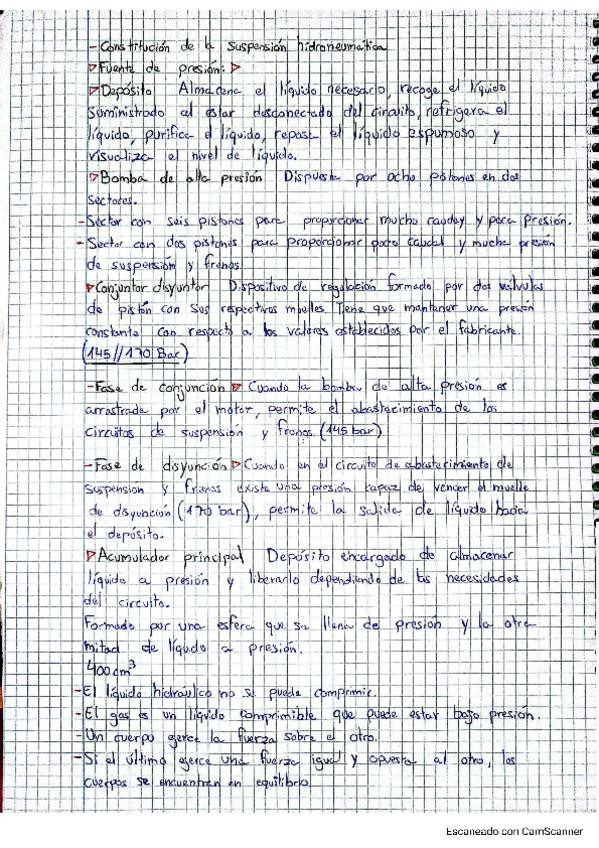 - Constitución de la suspensión hidroneumática
▷ Fuente de presión: ▷
▷ Depósito Almacena el líquido necesario, recoge el líquido
suministrado al estar desconectado del circuito, refrigera el
líquido, purifica el líquido, reposa el líquido espumoso y
visualiza el nivel de líquido.
▷ Bomba de alta presión Dispuesta por ocho pistones en dos
sectores.
- Sector con seis pistones para proporcionar mucho caudal y poca presión.
- Sector con dos pistones para proporcionar poco caudal y mucha presión
de suspensión y frenos
▷ Conjuntor disyuntor Dispositivo de regulación formado por dos válvulas
de pistón con sus respectivos muelles. Tiene que mantener una presión
constante con respecto a los valores establecidos por el fabricante.
(145//170 Bar)
- Fase de conjunción ▷ Cuando la bomba de alta presión es
arrastrada por el motor, permite el abastecimiento de los
circuitos de suspensión y frenos. (145 bar)
- Fase de disyunción ▷ Cuando en el circuito de abastecimiento de
suspension y frenos exista una presión capaz de vencer el muelle
de disyunción (170 bar), permite la salida de líquido hacia
el depósito.
▷ Acumulador principal Depósito encargado de almacenar
líquido a presión y liberarlo dependiendo de las necesidades
del circuito.
Formado por una esfera que se llena de presión y la otra
mitad de líquido a presión.
400 cm³
- El líquido hidraúlico no se puede comprimir.
- El gas es un líquido comprimible que puede estar bajo presión.
- Un cuerpo ejerce la fuerza sobre el otro.
- Si el último ejerce una fuerza igual y opuesta al otro, los
cuerpos se encuentran en equilibrio.
Escaneado con CamScanner